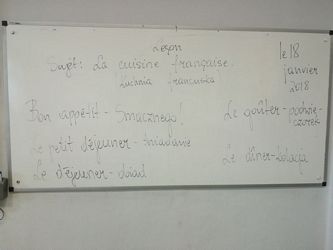 Leçon
le 18
janvier
2018
Sujet: La cuisine française.
(kuchnia francuska)
Bon appétit - Smacznego!
Le petit déjeuner - śniadanie
Le déjeuner - obiad
Le goûter - podwie-
czorek
Le dîner - kolacja